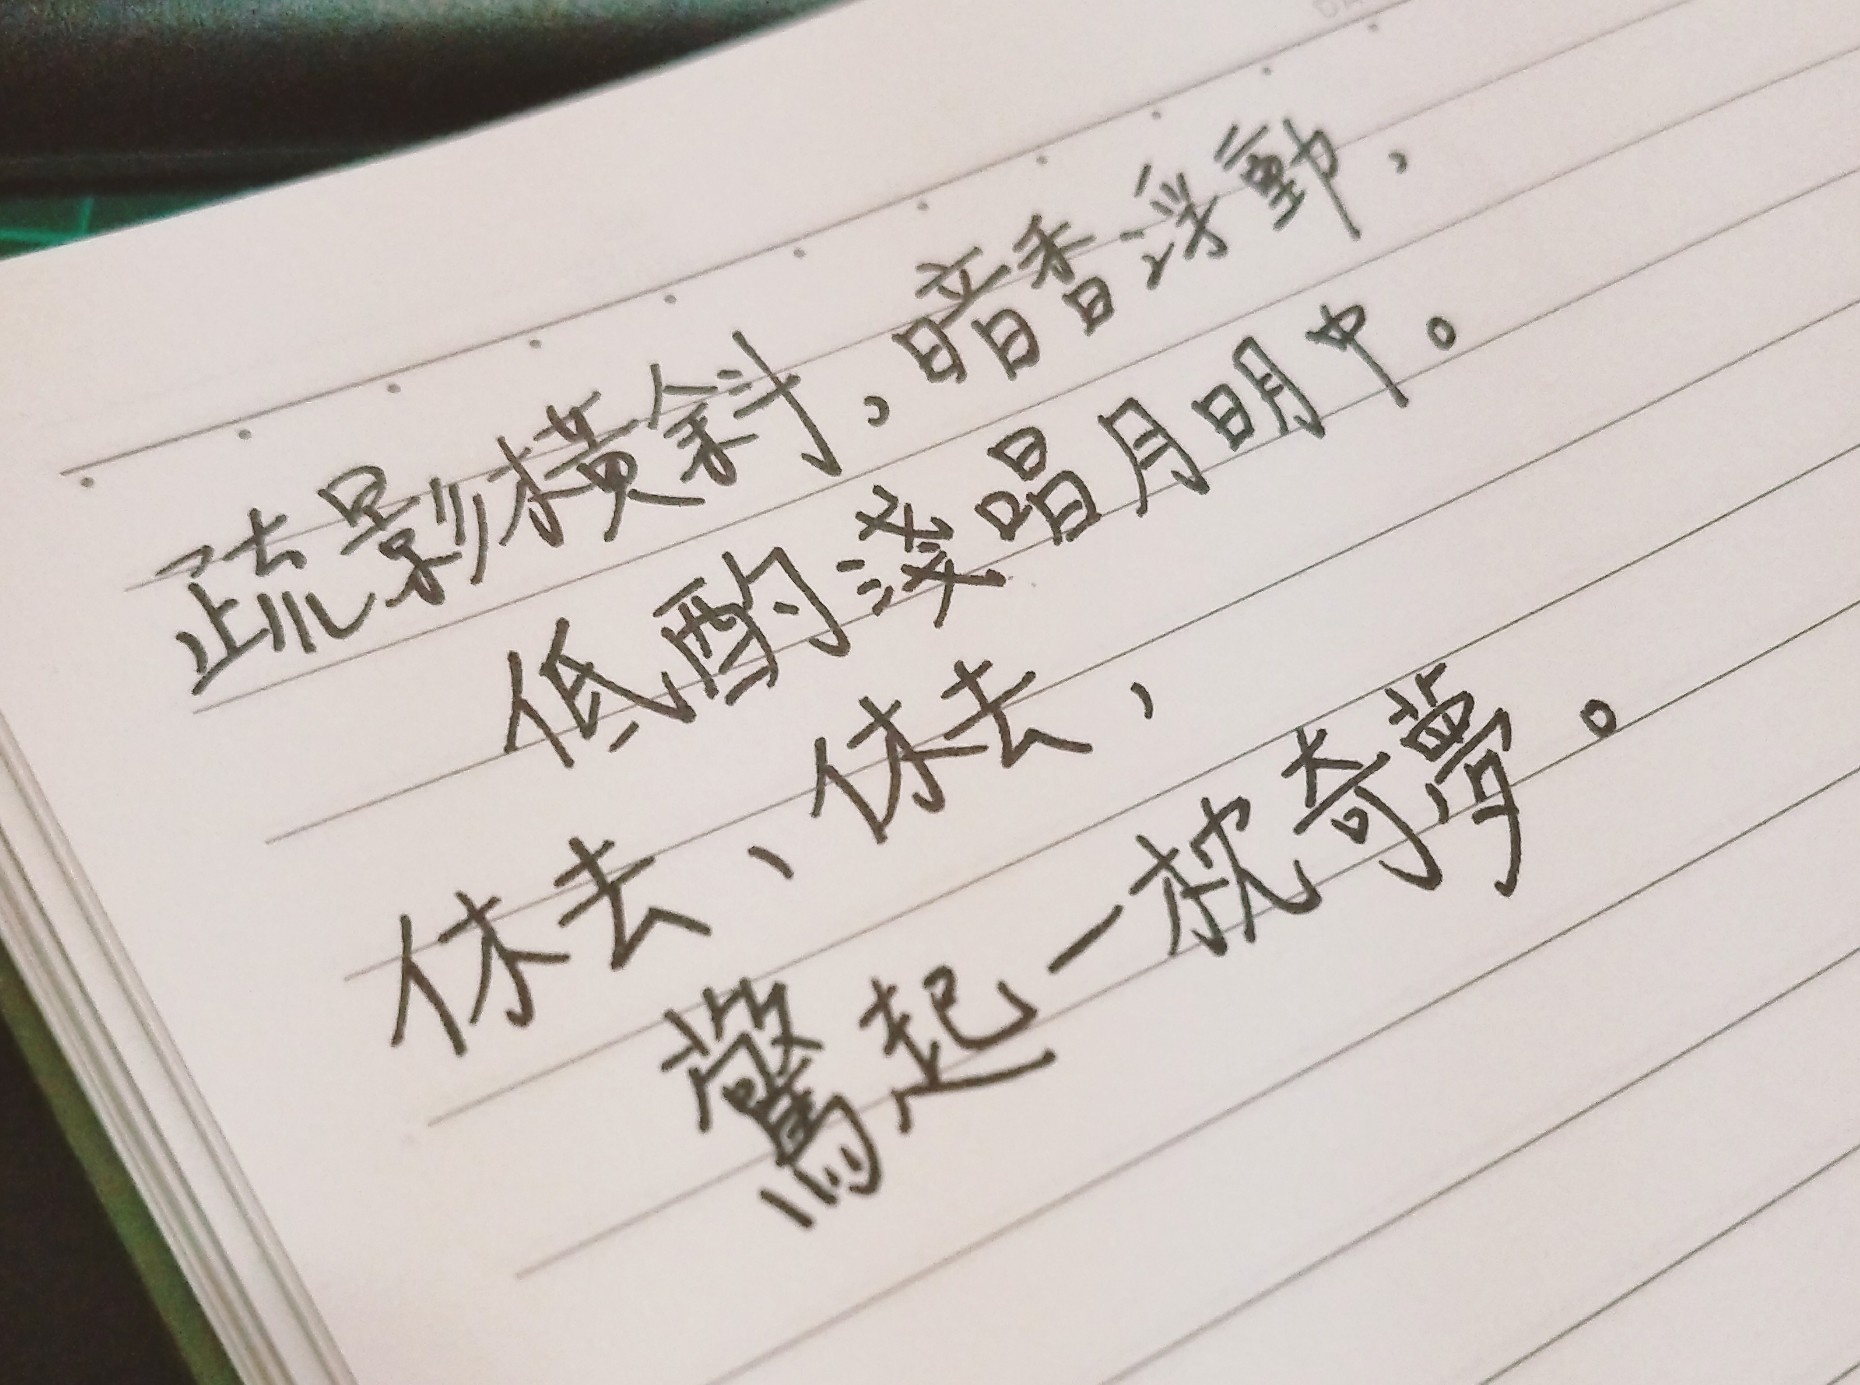 疏影橫斜,暗香浮動,
低酌淺唱月明中。
休去、休去,
驚起一枕奇夢。